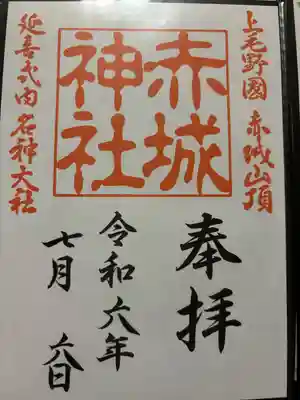 上毛野國 赤城山頂
赤城
神社
延喜式内 名神大社
奉拝
令和六年
七月 六日